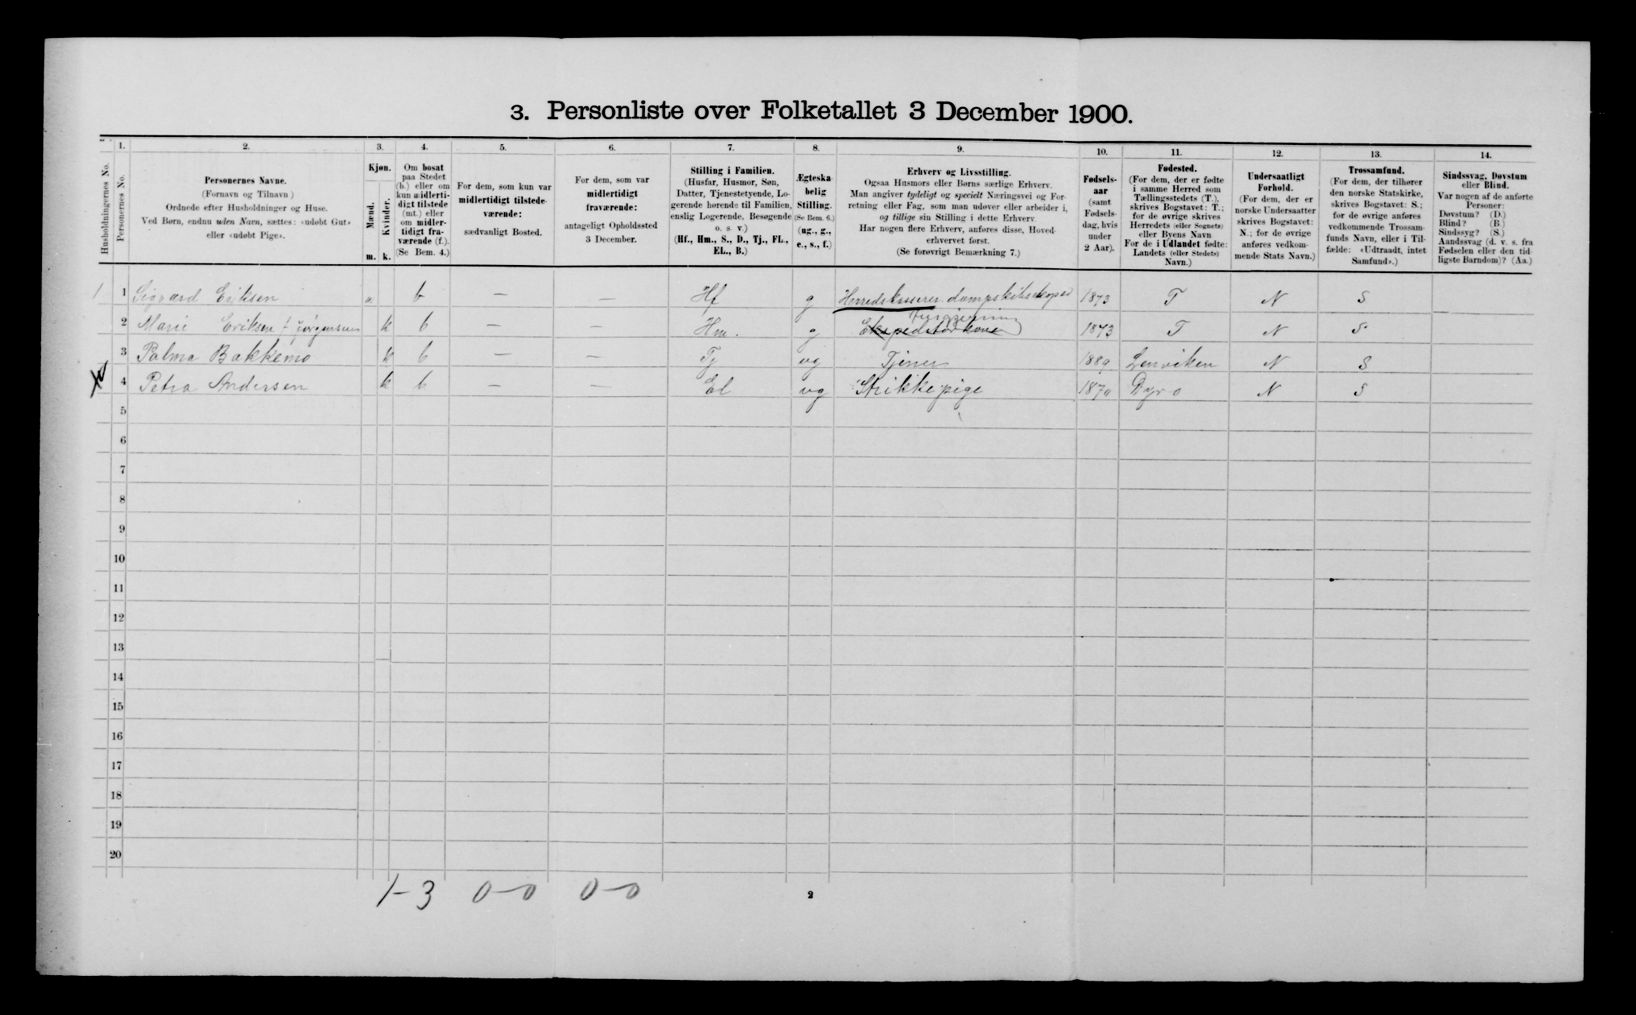 3. Personliste over Folketallet 3 December 1900.
Husholdningernes No.
1.
Personernes No.
2.
Personernes Navne.
(Fornavn og Tilnavn)
Ordnede efter Husholdninger og Huse.
Ved Børn, endnu uden Navn, sættes: «udøbt Gut»
eller «udøbt Pige».
3.
Kjøn.
Mænd.
Kvinder.
m. k.
4.
Om bosat
paa Stedet
(b.) eller om
kun midlerti-
digt tilstede
(mt.) eller
om midler-
tidigt fra-
værende (f.).
(Se Bem. 4.)
5.
For dem, som kun var
midlertidigt tilstede-
værende:
sædvanligt Bosted.
6.
For dem, som var
midlertidigt
fraværende:
antageligt Opholdssted
3 December.
7.
Stilling i Familien.
(Husfar, Husmor, Søn,
Datter, Tjenestetyende, Lo-
gerende hørende til Familien,
enslig Logerende, Besøgende
o. s. v.)
(Hf., Hm., S., D., Tj., FL.,
EL., B.)
8.
Ægteska-
belig
Stilling.
(Se Bem. 6.)
(ug., g.,
e., s., f.)
9.
Erhverv og Livsstilling.
Ogsaa Husmors eller Børns særlige Erhverv.
Man angiver tydeligt og specielt Næringsvei og For-
retning eller Fag, som man udøver eller arbeider i,
og tillige sin Stilling i dette Erhverv.
Har nogen flere Erhverv, anføres disse, Hoved-
erhvervet først.
(Se forøvrigt Bemærkning 7.)
10.
Fødsels-
aar
(samt
Fødsels-
dag, hvis
under
2 Aar).
11.
Fødested.
(For dem, der er fødte
i samme Herred som
Tællingsstedets (T.),
skrives Bogstavet: T.;
for de øvrige skrives
Herredets (eller Sognets)
eller Byens Navn
For de i Udlandet fødte:
Landets (eller Stedets)
Navn.)
12.
Undersaatligt
Forhold.
(For dem, der er
norske Undersaatter
skrives Bogstavet:
N.; for de øvrige
anføres vedkom-
mende Stats Navn.)
13.
Trossamfund.
(For dem, der tilhører
den norske Statskirke,
skrives Bogstavet: S.;
for de øvrige anføres
vedkommende Trossam-
funds Navn, eller i Til-
fælde: «Udtraadt, intet
Samfund».)
14.
Sindssvag, Døvstum
eller Blind.
Var nogen af de anførte
Personer:
Døvstum? (D.)
Blind? (B.)
Sindssyg? (S.)
Aandssvag (d. v. s. fra
Fødselen eller den tid-
ligste Barndom)? (Aa.)
1 1 Sigvard Eriksen b — — Hf g Herredskasserer 1873 T N S
2 Marie Eriksen f Jørgensen k b — — Hm. g Ekspeditør kone 1873 T N S
3 Palma Bakkemo k b — — Tj ug Tjener 1889 Lenviken N S
4 Petra Andersen k b — — El ug Strikkepige 1879 Dyrø N S
5
6
7
8
9
10
11
12
13
14
15
16
17
18
19
20
1-3 0-0 0-0
2